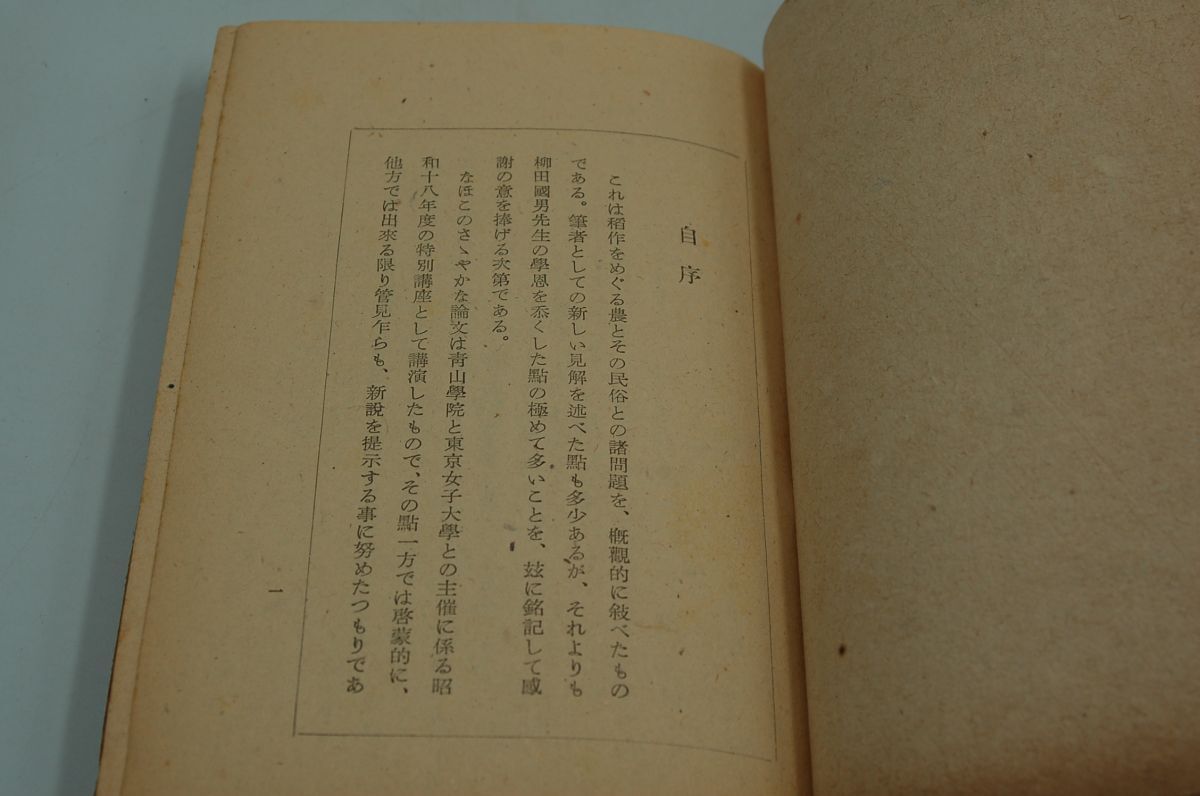 自序
これは稻作をめぐる農とその民俗との諸問題を、概觀的に敍べたもの
である。筆者としての新しい見解を述べた點も多少あるが、それよりも
柳田國男先生の學恩を忝くした點の極めて多いことを、玆に銘記して感
謝の意を捧げる次第である。
なほこのさゝやかな論文は靑山學院と東京女子大學との主催に係る昭
和十八年度の特別講座として講演したもので、その點一方では啓蒙的に、
他方では出來る限り管見乍らも、新說を提示する事に努めたつもりであ
一